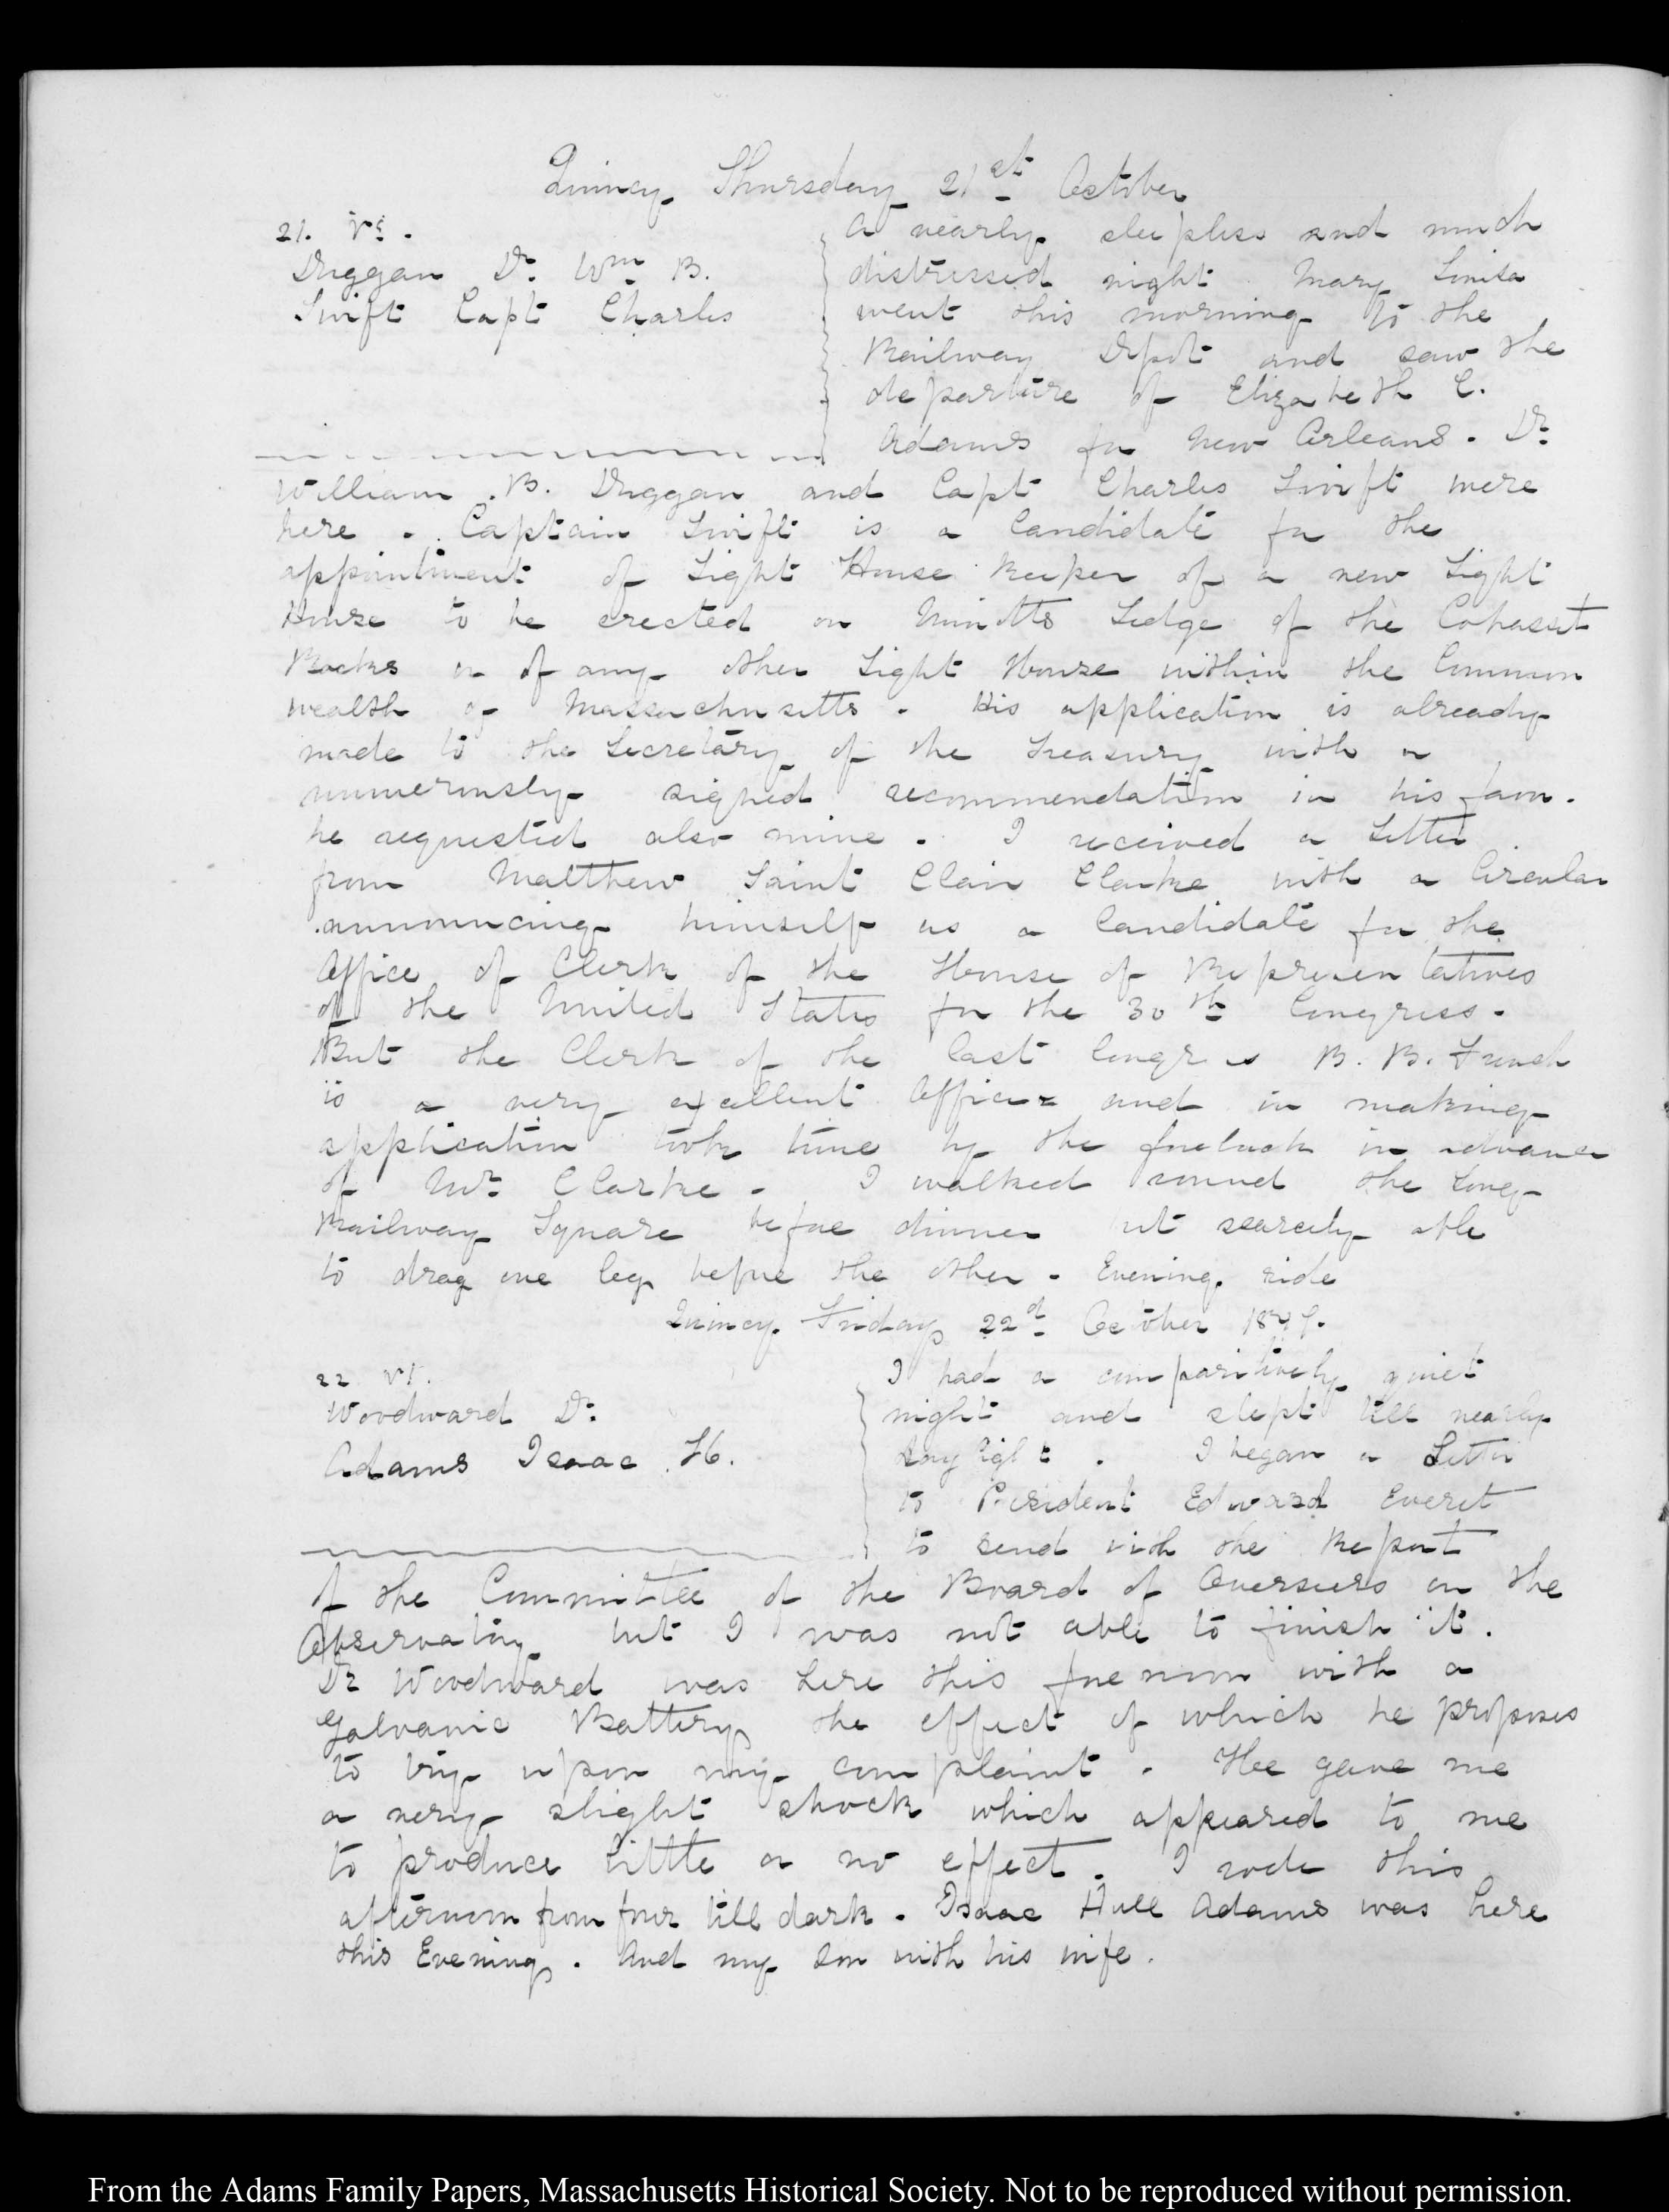 Quincy Thursday 21st October
21. V§.
Duggan Dr. Wm B.
Swift Capt Charles
A nearly sleepless and much
distressed night. Mary Louisa
went this morning to the
Railway Depot and saw the
departure of Elizabeth C.
Adams for New Orleans. Dr.
William B. Duggan and Capt Charles Swift were
here. Captain Swift is a Candidate for the
appointment of Light House Keeper of a new Light
House to be erected on Minotts Ledge of the Cohasset
Rocks or of any other Light House within the Common
wealth of Massachusetts. His application is already
made to the Secretary of the Treasury with a
numerously signed recommendation in his favor.
he requested also mine. I received a Letter
from Matthew Saint Clair Clarke with a Circular
announcing himself as a Candidate for the
Office of Clerk of the House of Representatives
of the United States for the 30th Congress.
But the Clerk of the last Congress B. B. French
is a very excellent Officer and in making
application took time by the forelock in advance
of Mr. Clarke. I walked round the Long
Railway Square before dinner but scarcely able
to drag one leg before the other. Evening ride
Quincy Friday 22d October 1847.
22 VI.
Woodward Dr.
Adams Isaac H.
I had a comparitively quiet
night and slept till nearly
day light. I began a Letter
to President Edward Everet
to send with the Report
of the Committee of the Board of Overseers on the
Observatory but I was not able to finish it.
Dr Woodward was here this forenoon with a
Galvanic Battery the effect of which he proposes
to try upon my complaint. Hee gave me
a very slight shock which appeared to me
to produce little or no effect. I rode this
afternoon from four till dark. Isaac Hull Adams was here
this Evening. And my Son with his wife.
From the Adams Family Papers, Massachusetts Historical Society. Not to be reproduced without permission.